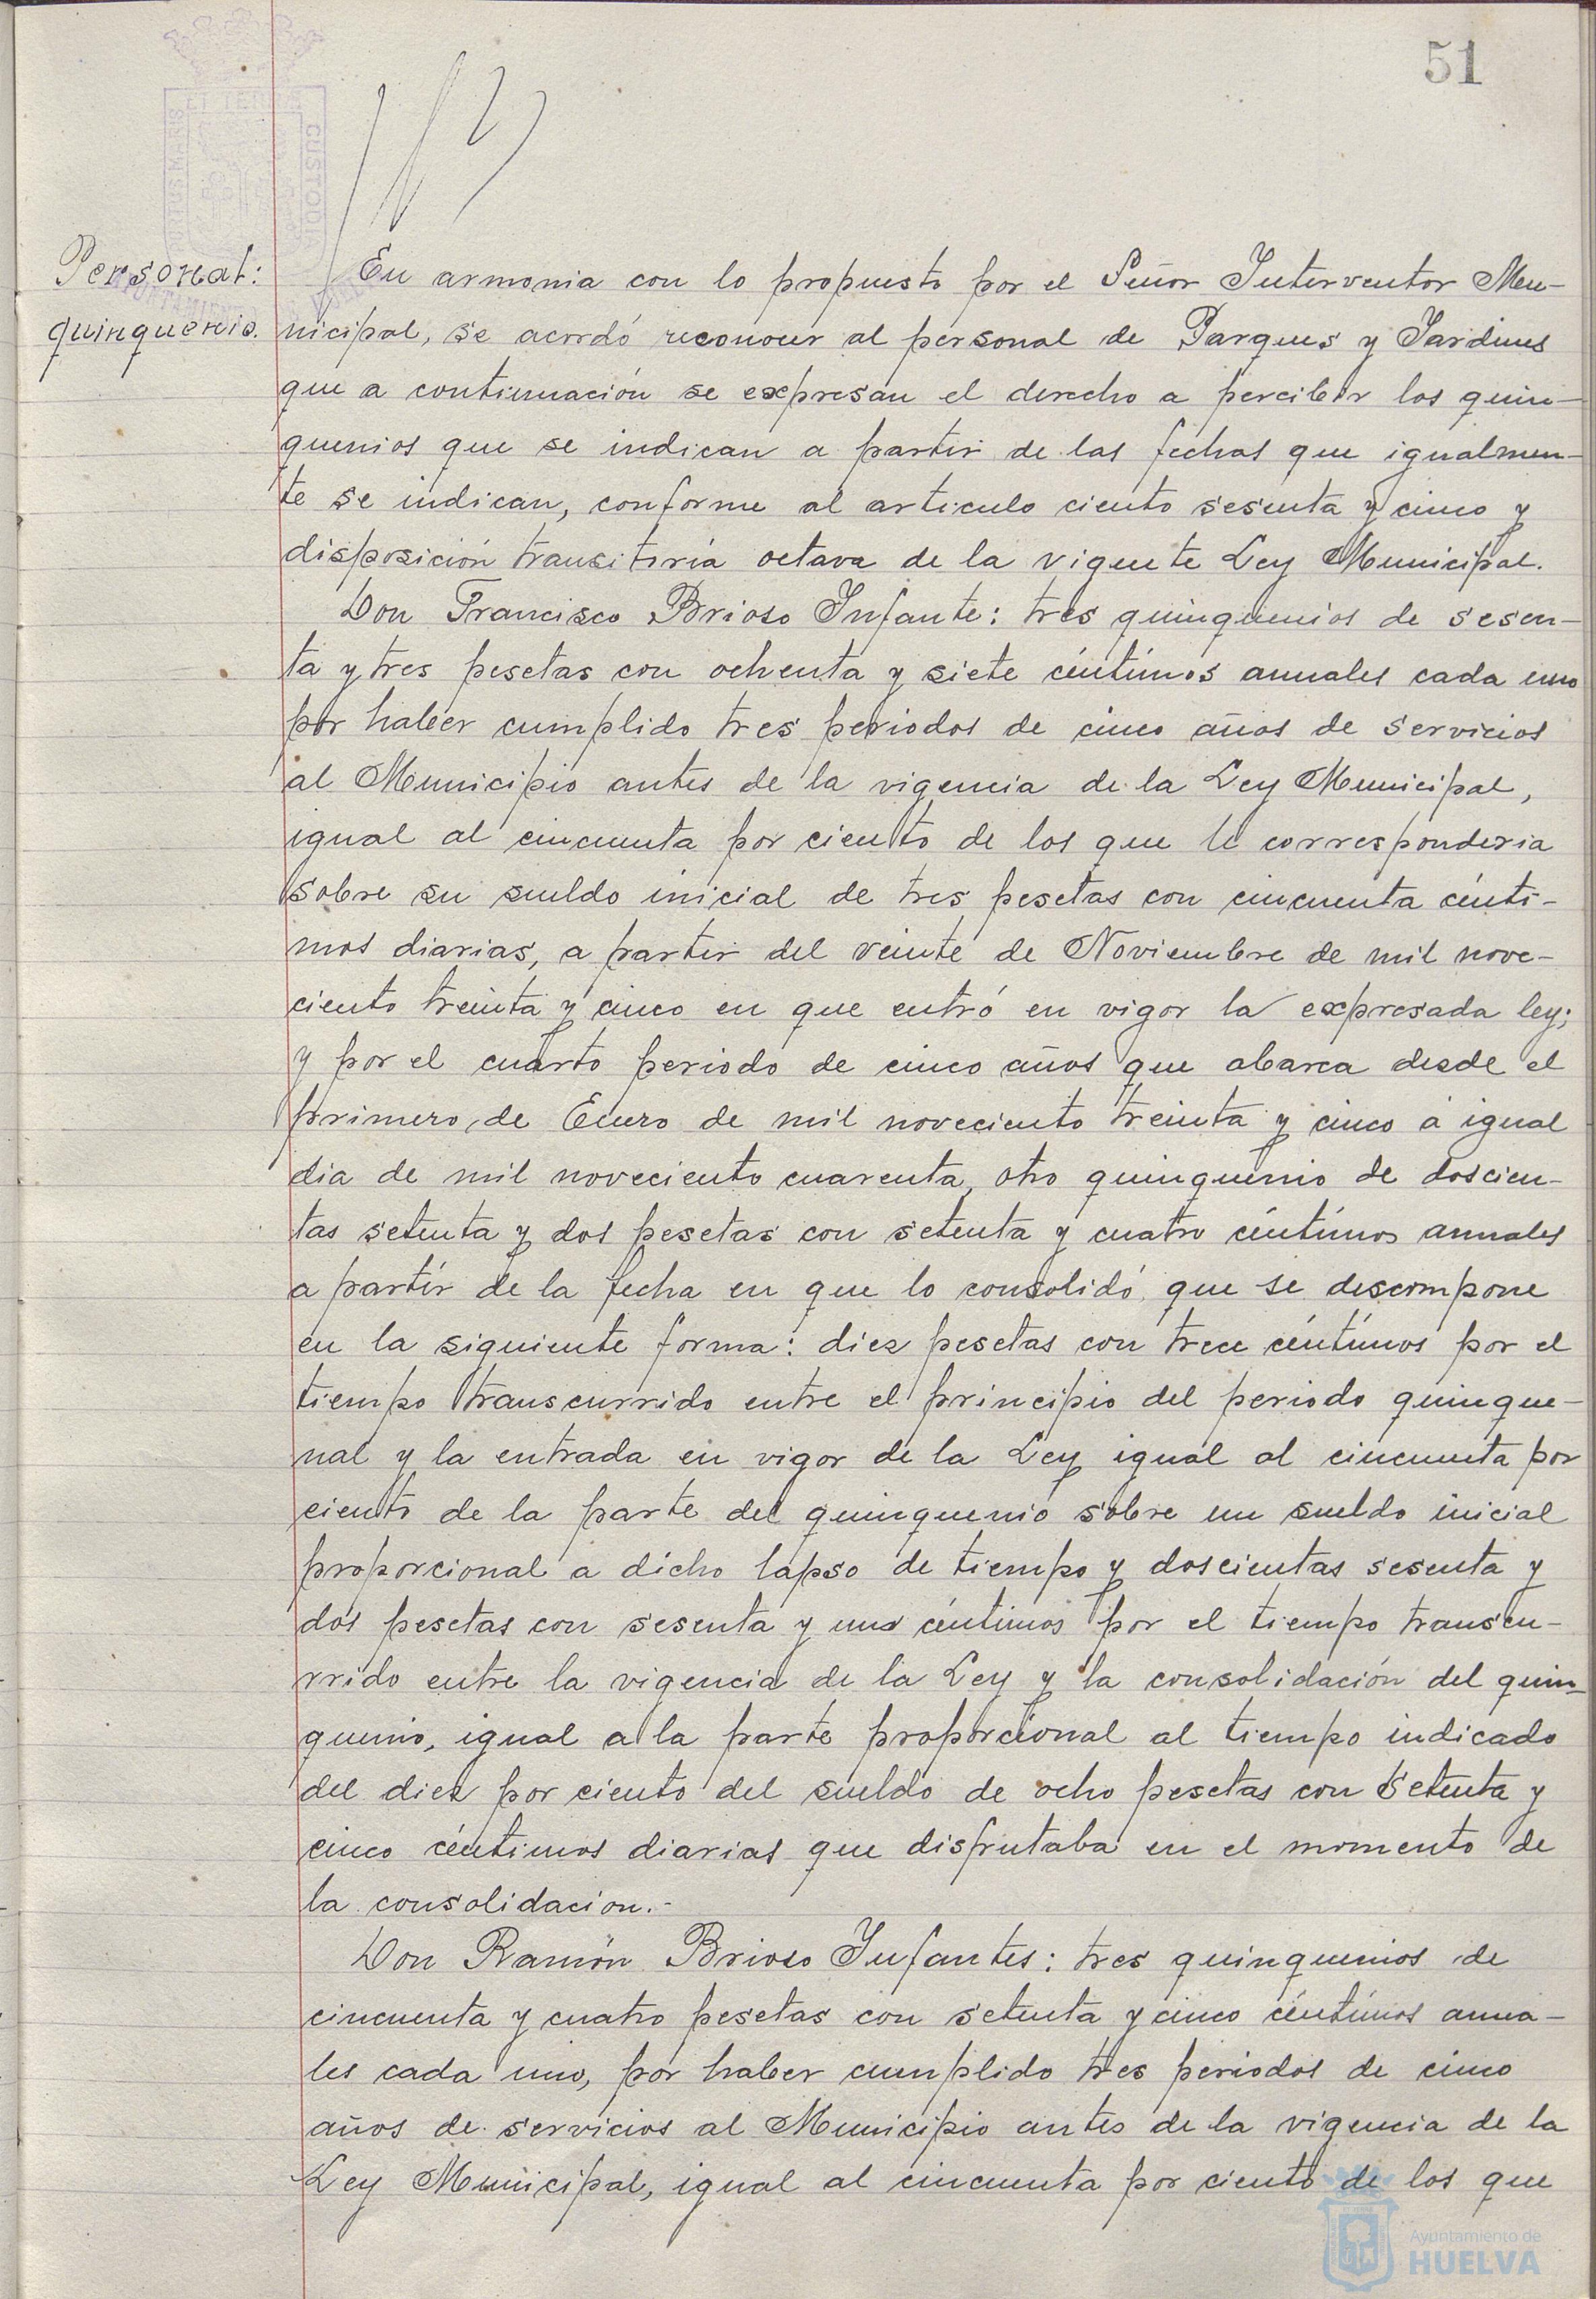 51
Personal:
quinquenio.
En armonia con lo propuesto por el Señor Interventor Mu-
nicipal, se acordó reconocer al personal de Parques y Jardines
que a continuación se expresan el derecho a percibir los quin-
quenios que se indican a partir de las fechas que igualmen-
te se indican, conforme al articulo ciento sesenta y cinco y
disposición transitoria octava de la vigente Ley Municipal.
Don Francisco Brioso Infante: tres quinquenios de sesen-
ta y tres pesetas con ochenta y siete céntimos anuales cada uno
por haber cumplido tres periodos de cinco años de servicios
al Municipio antes de la vigencia de la Ley Municipal,
igual al cincuenta por ciento de los que le corresponderia
sobre su sueldo inicial de tres pesetas con cincuenta cénti-
mos diarias, a partir del veinte de Noviembre de mil nove-
ciento treinta y cinco en que entró en vigor la expresada ley;
y por el cuarto periodo de cinco años que abarca desde el
primero, de Enero de mil noveciento treinta y cinco a igual
dia de mil noveciento cuarenta, otro quinquenio de doscien-
tas setenta y dos pesetas con setenta y cuatro céntimos anuales
a partir de la fecha en que lo consolidó, que se descompone
en la siguiente forma: diez pesetas con trece céntimos por el
tiempo transcurrido entre el principio del periodo quinque-
nal y la entrada en vigor de la Ley igual al cincuenta por
ciento de la parte del quinquenio sobre un sueldo inicial
proporcional a dicho lapso de tiempo y doscientas sesenta y
dos pesetas con sesenta y uno céntimos por el tiempo transcu-
rrido entre la vigencia de la Ley y la consolidación del quin-
quenio, igual a la parte proporcional al tiempo indicado
del diez por ciento del sueldo de ocho pesetas con setenta y
cinco céntimos diarias que disfrutaba en el momento de
la consolidacion.-
Don Ramón Brioso Infantes: tres quinquenios de
cincuenta y cuatro pesetas con setenta y cinco céntimos anua-
les cada uno, por haber cumplido tres periodos de cinco
años de servicios al Municipio antes de la vigencia de la
Ley Municipal, igual al cincuenta por ciento de los que
Ayuntamiento de
HUELVA